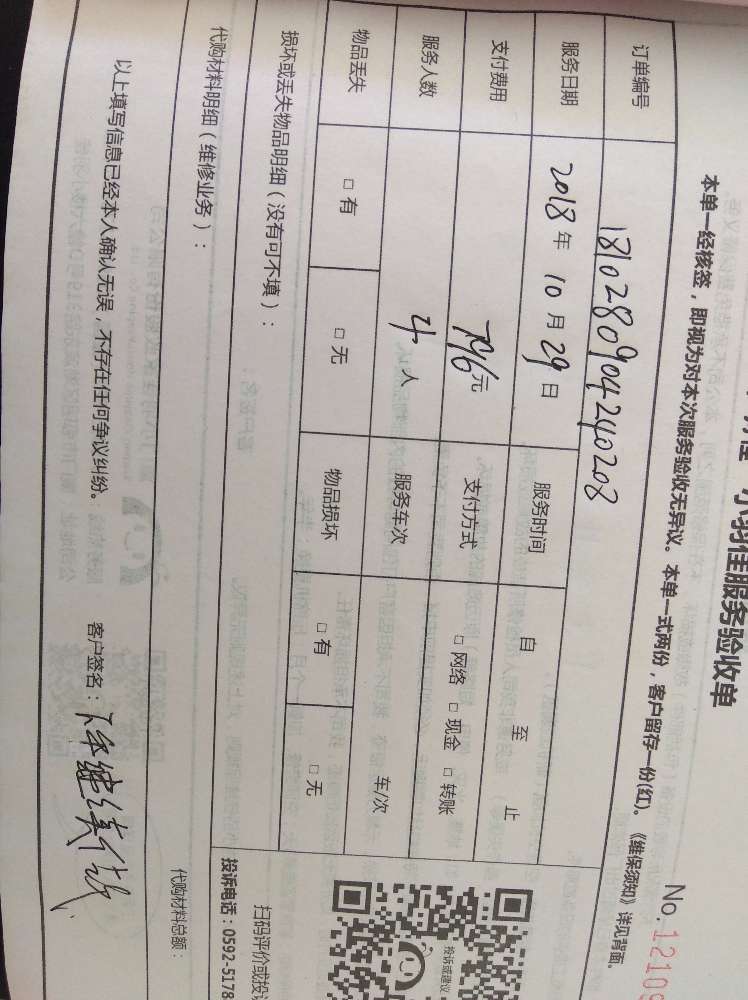 小羽佳服务验收单
No.12109
本单一经核签，即视为对本次服务验收无异议。本单一式两份，客户留存一份(红)。《维保须知》详见背面。
订单编号 1810280904240208
服务日期 2018年10月29日 服务时间 自 至 止
支付费用 元 支付方式 □网络 □现金 □转账
服务人数 4人 服务车次 车/次
物品丢失 □有 □无 物品损坏 □有 □无
损坏或丢失物品明细（没有可不填）：
投诉或建议
扫码评价或投
代购材料明细（维修业务）：
投诉电话：0592-5178
代购材料总额：
以上填写信息已经本人确认无误，不存在任何争议纠纷。 客户签名：